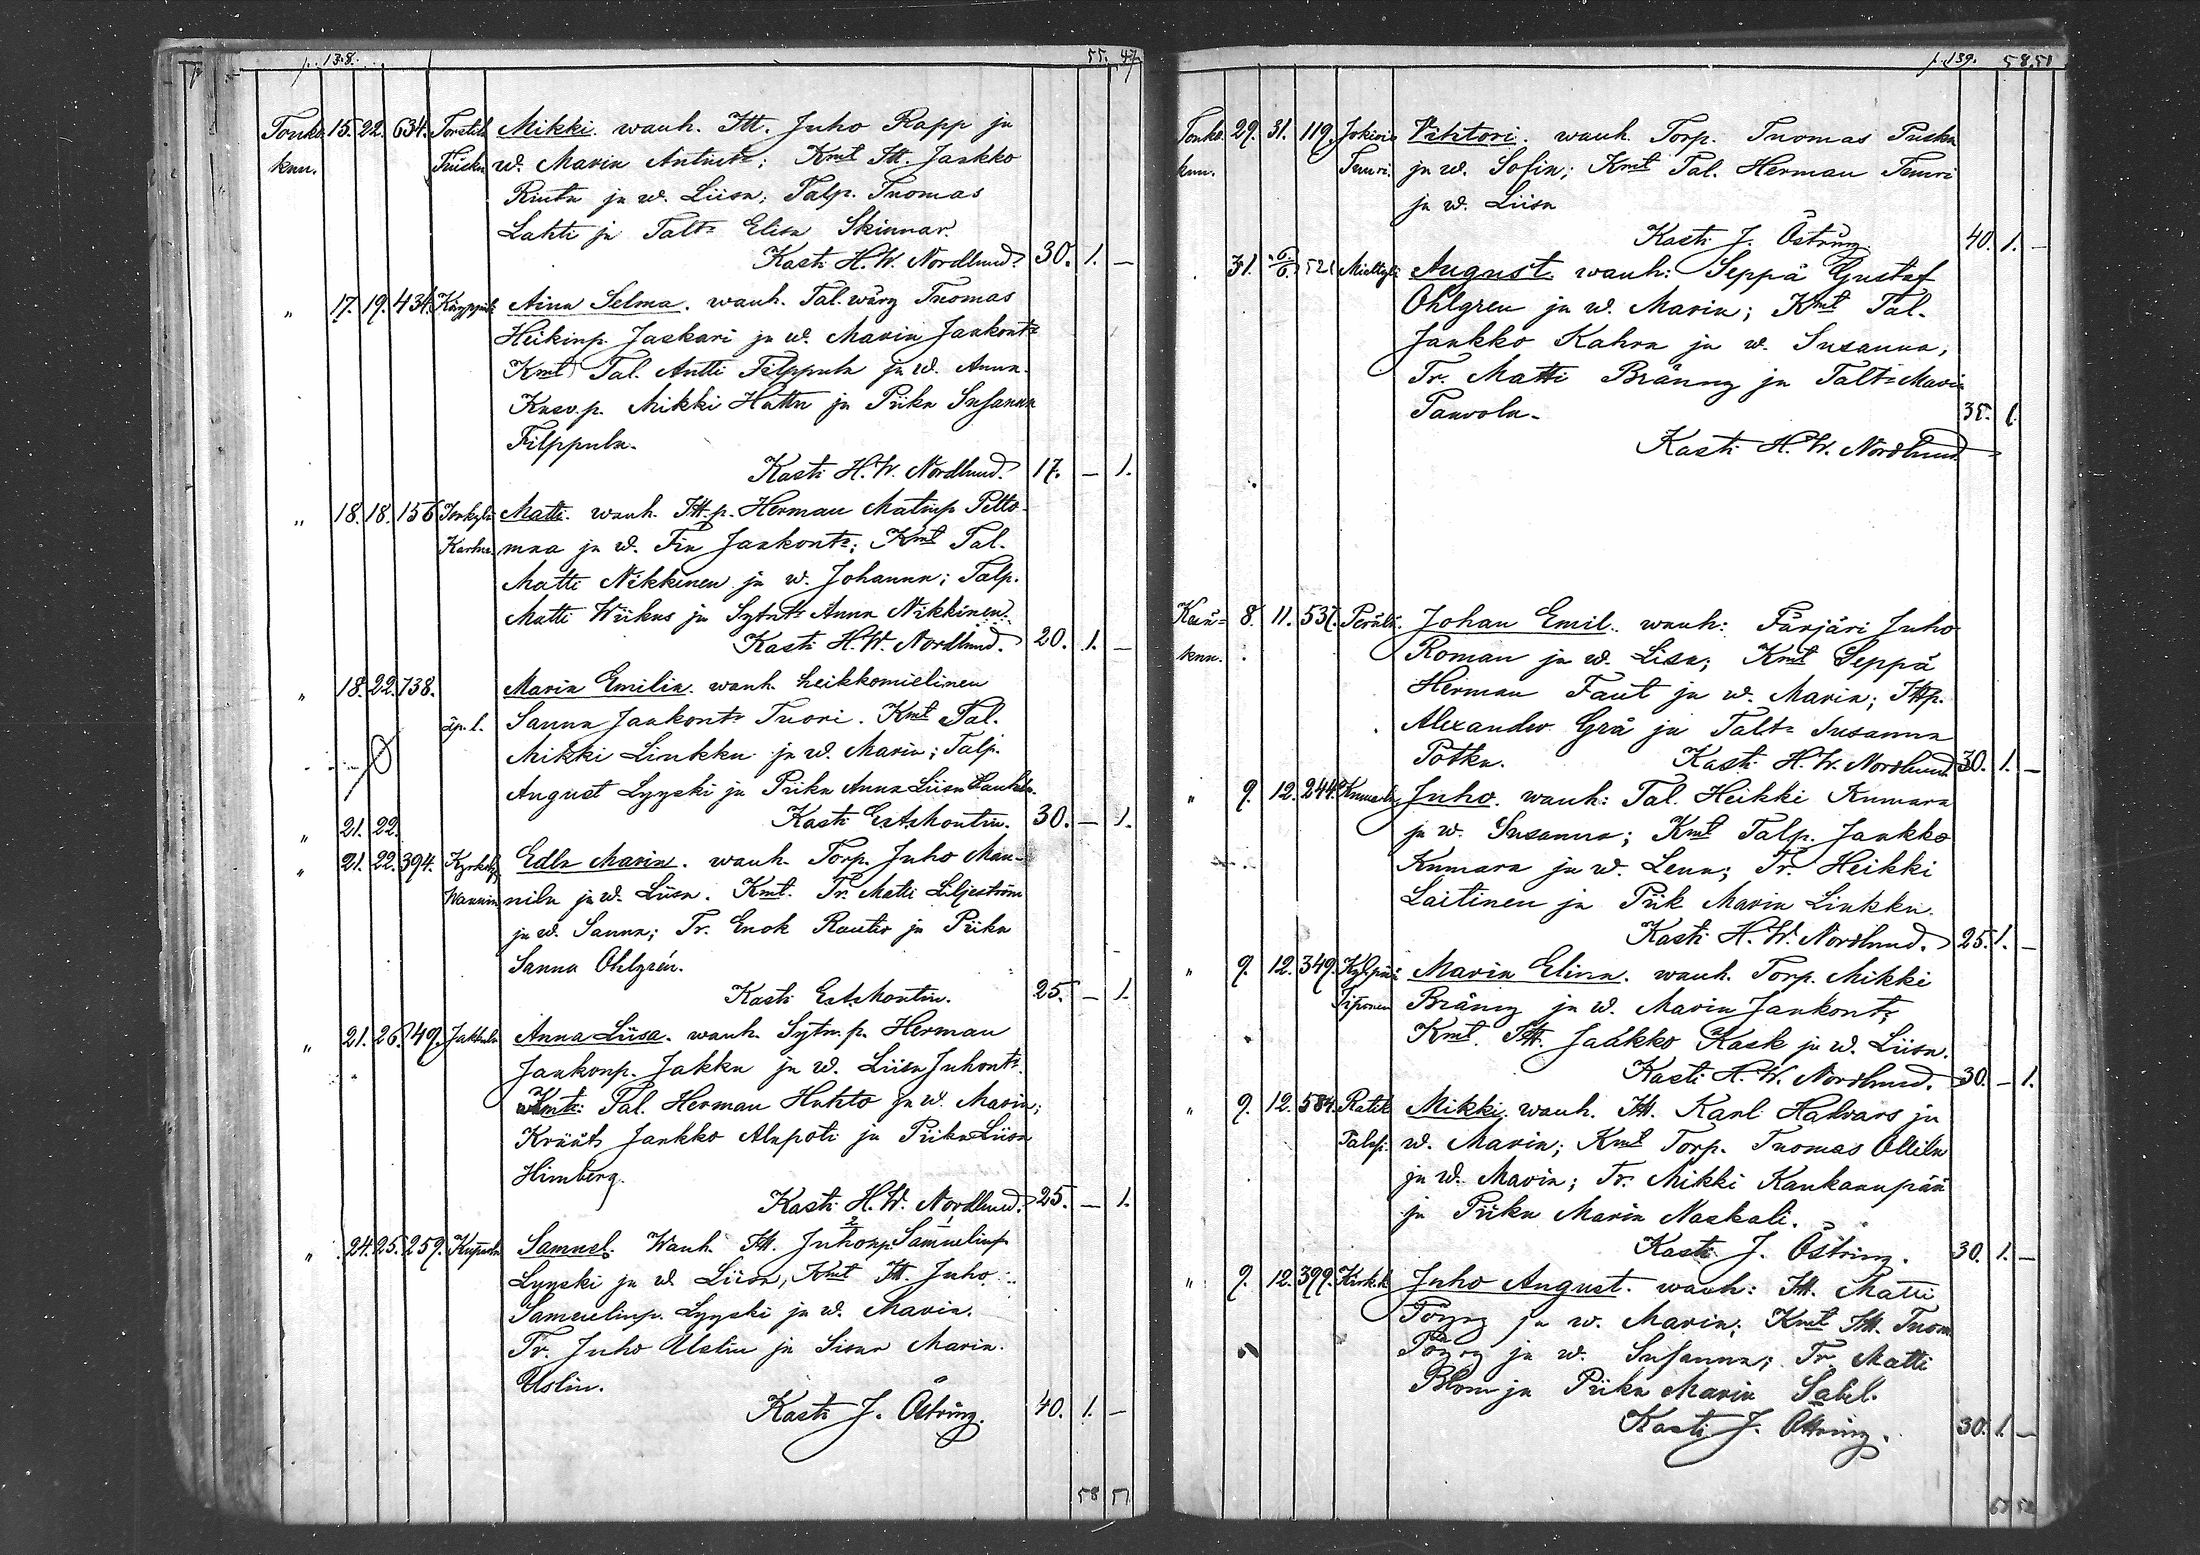 p. 138. 55. 47
Touko 15. 22. 634. Mikki. wanh. Itt. Juho Rapp ja
knn. w. Maria Antint:; Kmt Itt. Jaakko
Rinta ja w. Liisa; Talp. Tuomas
Lahti ja Talt: Elisa Skinnar.
Kasti H. W. Nordlund. 30. 1. —
" 17. 19. 434. Aina Selma. wanh. Tal. wäry Tuomas
Heikinp. Jaskari ja w. Maria Jaakont:
Kmt Tal. Antti Filppula ja w. Anna.
Kasv. p. Mikki Hattu ja Piika Susanna
Filppula.
Kasti H. W. Nordlund. 17. — 1.
" 18. 18. 156 Matti. wanh. Itt. p. Herman Matinp Pelto-
Karhu. maa ja w. Fia Jaakont:; Kmt Tal.
Matti Nikkinen ja w. Johanna; Talp.
Matti Wiikus ja Sytnt: Anna Nikkinen.
Kasti H. W. Nordlund. 20. 1. —
" 18. 22. 738. Maria Emilia. wanh. heikkomielinen
äp. l. Sanna Jaakont: Tuori. Kmt Tal.
Mikki Linkku ja w. Maria; Talp.
August Lyyski ja Piika Anna Liisa
Kasti 30. — 1.
" 21. 22.
" 21. 22. 394. Edla Maria. wanh. Torp. Juho Man-
nila ja w. Liisa. Kmt. Tr. Matti Liljeström
ja w. Sanna; Tr. Enok Rautio ja Piika
Sanna Ohlgrén.
Kasti 25. — 1.
" 21. 26. 49. Jakkula Anna Liisa. wanh. Sytn. p. Herman
Jaakonp. Jakku ja w. Liisa Juhont:
Kmt: Tal. Herman Huhto ja w. Maria;
Kräät. Jaakko Alapoti ja Piika Liisa
Himberg.
Kasti H. W. Nordlund. 25. — 1.
" 24. 25. 259. Samuel. Wanh. Itt. Juhonp Samuelinp
Lyyski ja w. Liisa, Kmt Itt. Juho
Samuelinp. Lyyski ja w. Maria.
Tr. Juho Uslin ja Sisar Maria
Uslin.
Kasti J. Östring. 40. 1. —
58 51
p. 139. 58. 51
Touko. 29. 31. 119. Wihtori. wanh. Torp. Tuomas Puska
knn. Tuuri. ja w. Sofia; Kmt Tal. Herman Tuuri
ja w. Liisa
Kasti J. Östring. 40. 1. —
31. 6/6 521 August. wanh: Seppä Gustaf
Ohlgren ja w. Maria; Kmt Tal.
Jaakko Kahra ja w. Susanna;
Tr. Matti Bränng ja Talt: Maria
Paavola. 35. 1.
Kasti H. W. Nordlund
Kesä- 8. 11. 537. Perälä. Johan Emil. wanh: Färjäri Juho
knn. Roman ja w. Lisa; Kmt Seppä
Herman Faut ja w. Maria; Ittp.
Alexander Grå ja Talt: Susanna
Potka. Kasti H. W. Nordlund. 30. 1. —
" 9. 12. 244. Juho. wanh: Tal. Heikki Kumara
ja w. Susanna; Kmt Talp. Jaakko
Kumara ja w. Lena; Tr. Heikki
Laitinen ja Piik Maria Linkku.
Kasti H. W. Nordlund. 25. 1. —
" 9. 12. 349. Maria Elina. wanh. Torp. Mikki
Piponen Bränng ja w. Maria Jaakont:
Kmt. Itt. Jaakko Kask ja w. Liisa.
Kasti H. W. Nordlund. 30. — 1.
" 9. 12. 584. Mikki. wanh. Itt. Karl Halvars ja
w. Maria; Kmt Torp. Tuomas Ollila
ja w. Maria; Tr. Mikki Kankaanpää
ja Piika Maria Naskali.
Kasti J. Östring. 30. 1. —
" 9. 12. 399. Kirk.k Juho August. wanh: Itt. Matti
Töyry ja w. Maria; Kmt Itt. Tuom
Töyry ja w. Susanna; Tr. Matti
Blom ja Piika Maria Sabel.
Kasti J. Östring. 30. 1. —